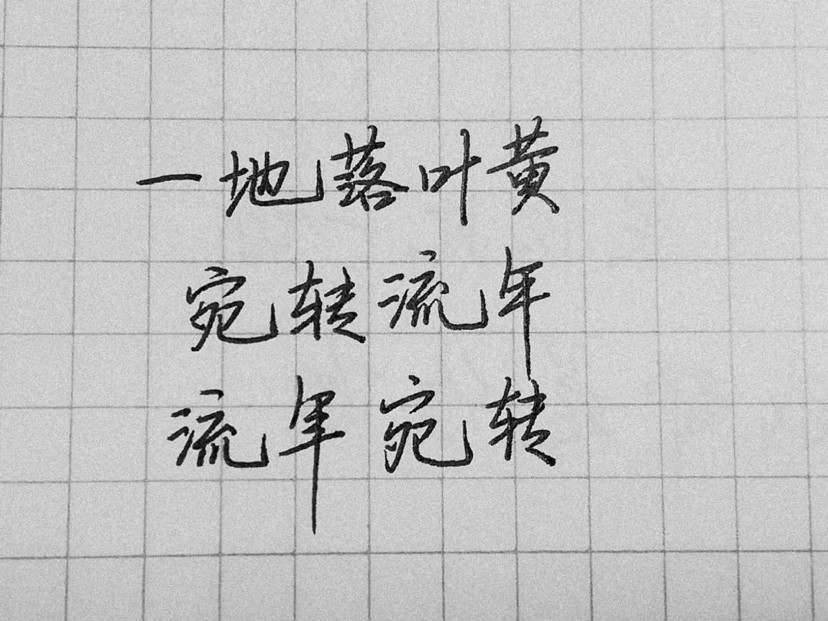 一地落叶黄
宛转流年
流年宛转